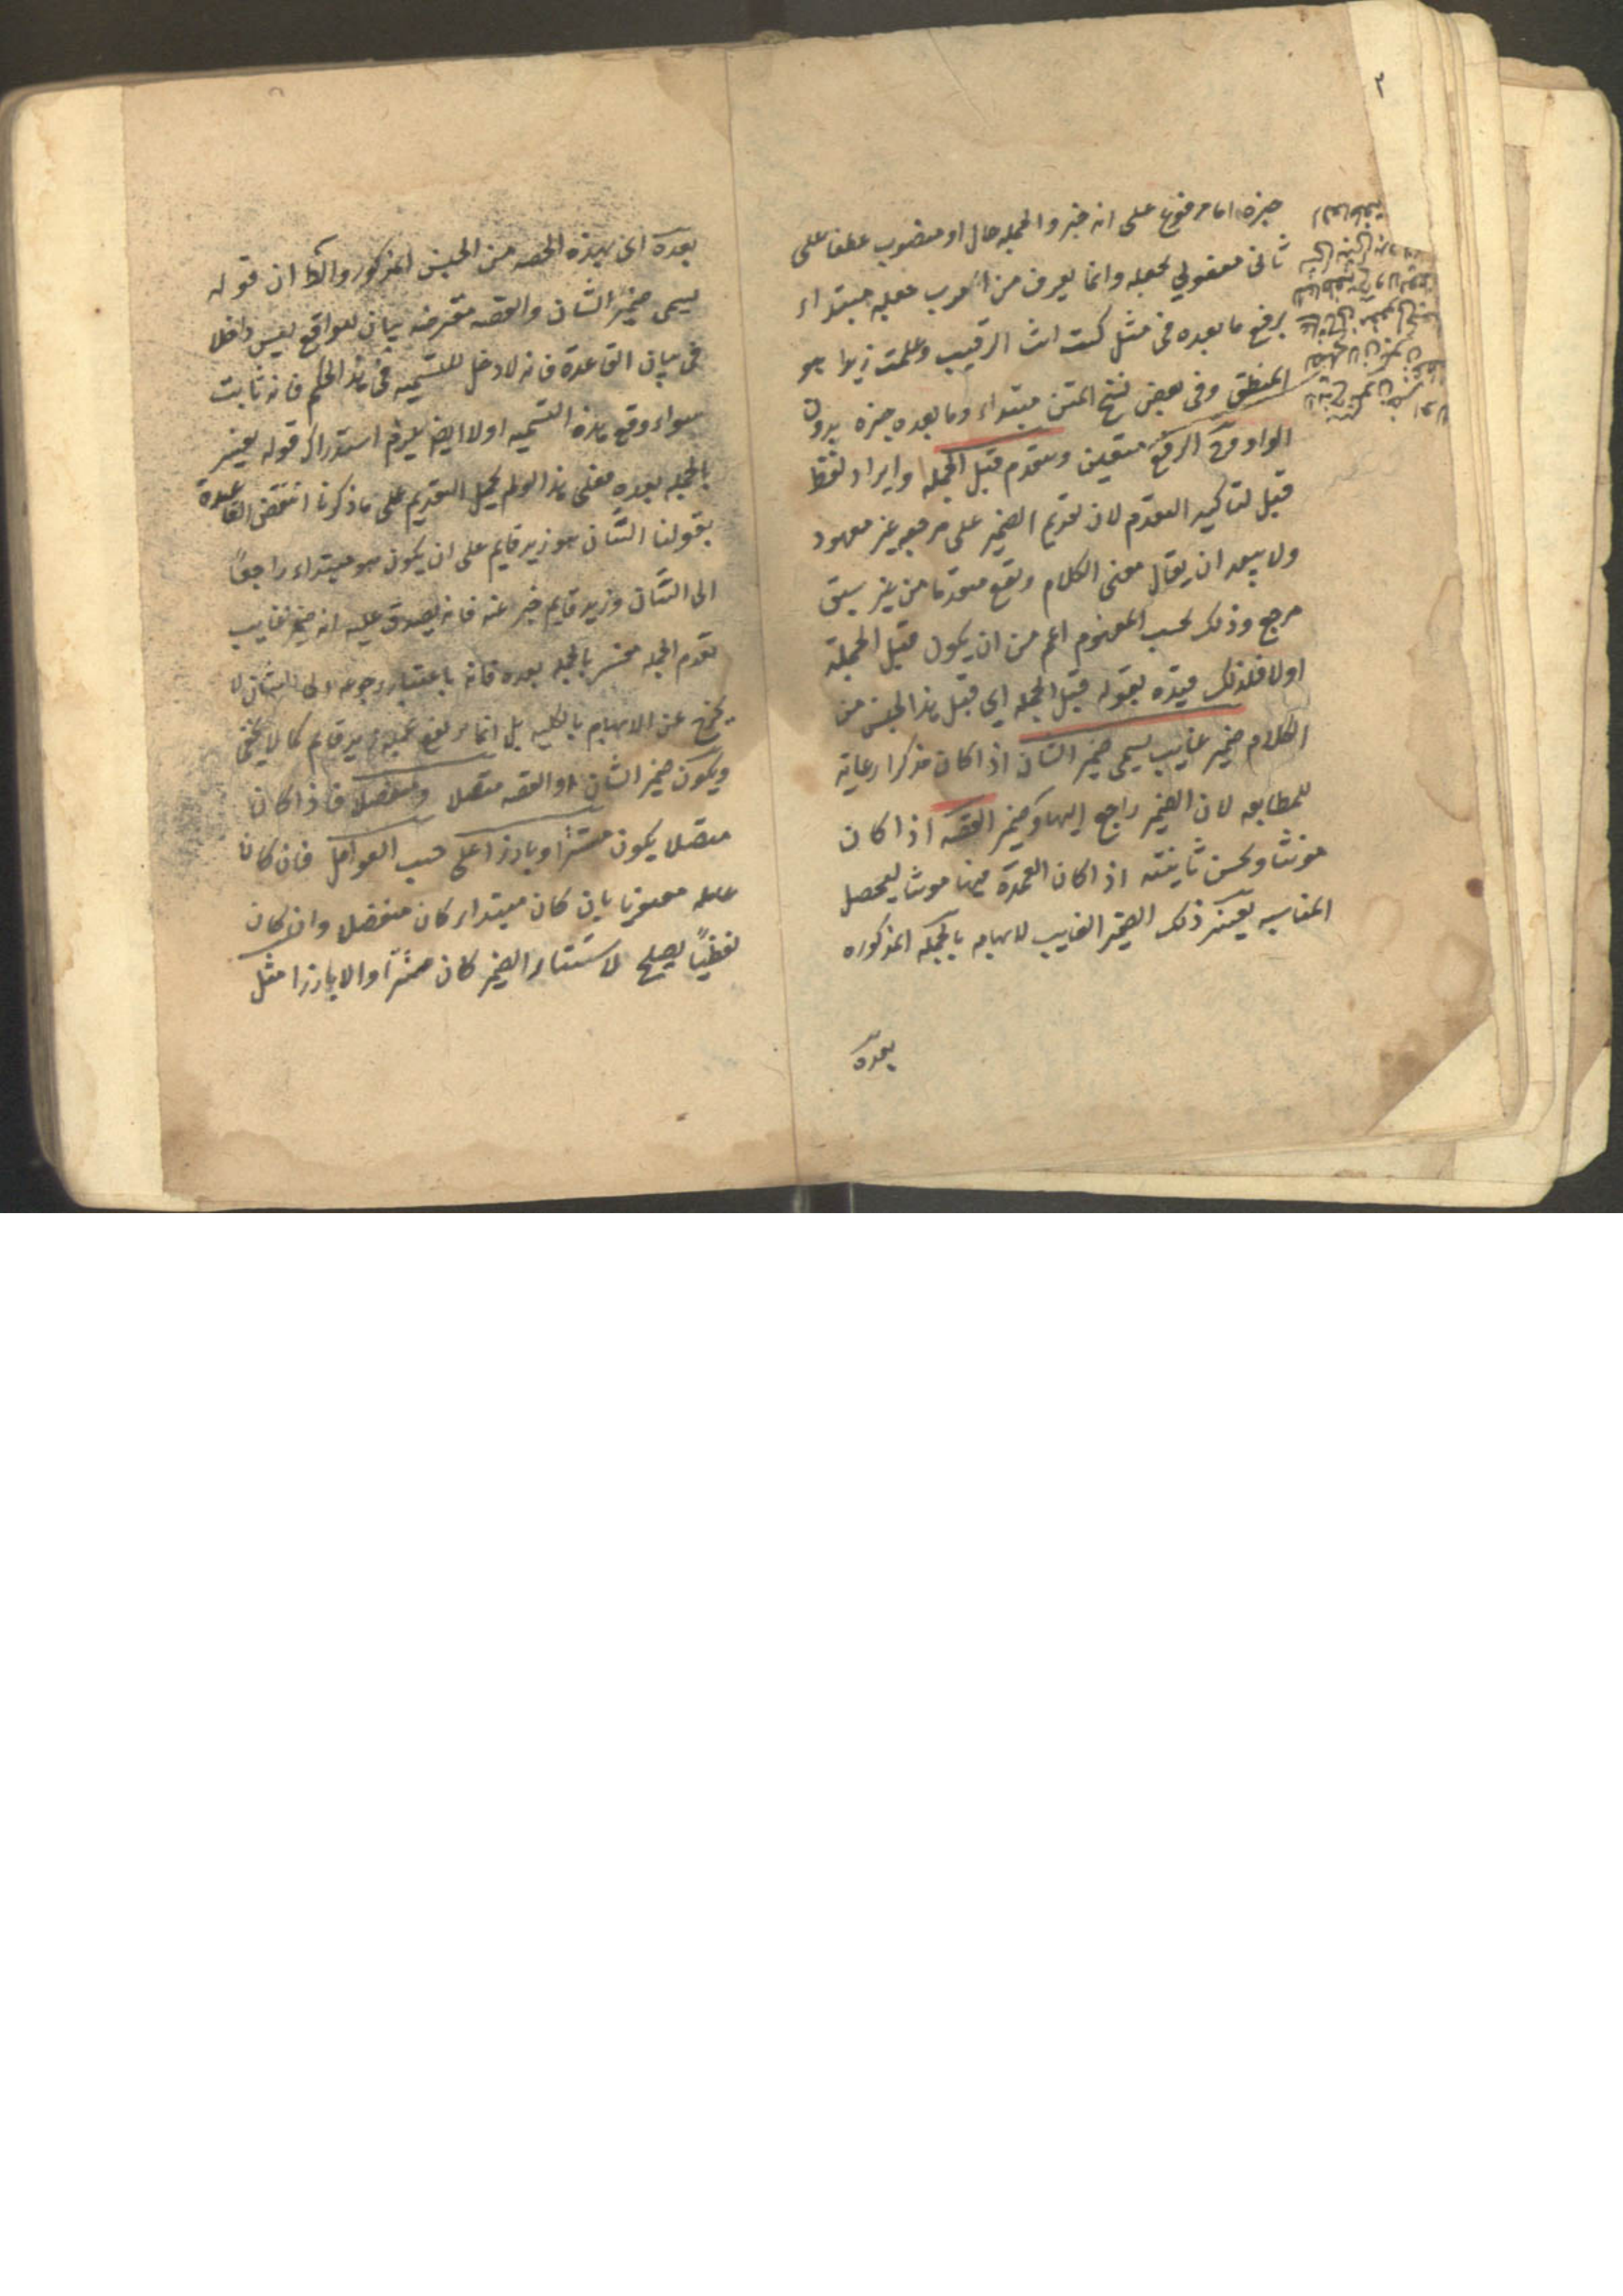 ٢
خبره اما مرفوع على انه خبر والجمله حال او منصوب عطفا على
ثانى مفعولي لجعله وانما يعرف من العرب جعله مبتداء
برفع ما بعده فى مثل كنت انت الرقيب وعلمت زيدا هو
المنطلق وفى بعض نسخ المتن مبتداء وما بعده خبره بدون
الواو وح الرفع متعين ويتقدم قبل الجمله وايراد لفظ
قبل لتاكيد التقدم لان تقديم الضمير على مرجعه غير معهود
ولا يبعد ان يقال معنى الكلام ويقع متقدما من غير سبق
مرجع وذلك بحسب المفهوم اعم من ان يكون قبل الجملة
اولا فلذلك قيده بقوله قبل الجمله اي قبل هذا الجنس من
الكلام ضمير غايب يسمى ضمير الشان اذا كان مذكرا رعاية
للمطابقه لان الضمير راجع اليها وضمير القصه اذا كان
مونثا ويحسن تانيثه اذا كان العمدة فيها مونثا ليحصل
المناسبه يفسر ذلك الضمير الغايب لابهامه بالجمله المذكوره
بعده
بعده اى بهذه الحصه من الجنس المذكور والظ ان قوله
يسمى ضمير الشان والقصه معترضه بيان للواقع ليس داخلا
فى بيان القاعدة فانه لا دخل للتسميه فى هذا الحكم فانه ثابت
سواء وقع هذه التسميه اولا ايضا يلزم استدراك قوله يفسر
بالجمله بعده فعلى هذا لو لم يحمل التقديم على ما ذكرنا انتقض القاعدة
بقولنا الشان هو زيد قايم على ان يكون هو مبتداء راجعًا
الى الشان وزيد قايم خبر عنه فانه يصدق عليه انه ضمير غايب
تقدم الجمله مفسر بالجمله بعده فانه باعتبار رجوعه الى الشان لا
يخرج عن الابهام بالكليه بل انما يرتفع بجمله زيد قايم كما لا يخفى
ويكون ضمير الشان او القصه متصلا ومنفصلا فاذا كان
متصلا يكون مستترا وبارزا على حسب العوامل فان كان
عامله معنويا بان كان مبتداء كان منفصلا وان كان
لفظيًا يصلح لاستتار الضمير كان مستترا والا بارزا مثل